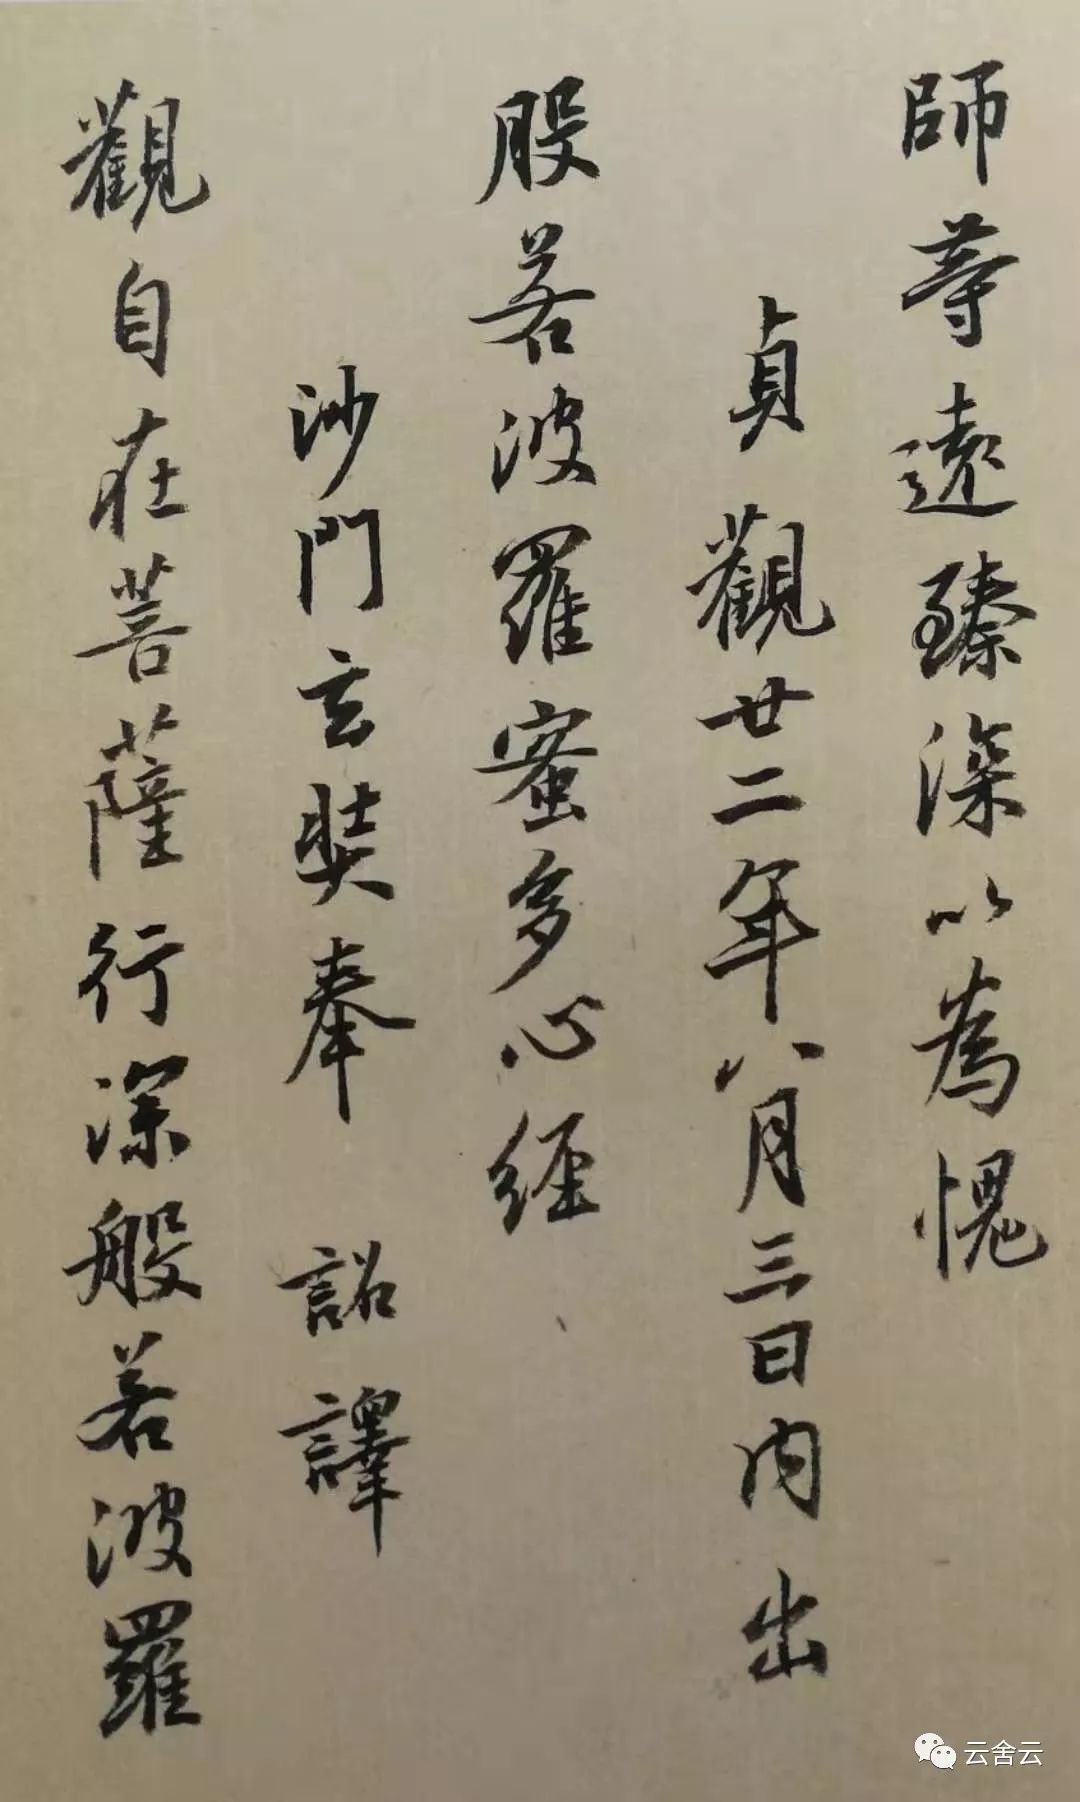 師等遠臻深以為愧
貞觀廿二年八月三日內出
般若波羅蜜多心經
沙門玄奘奉 詔譯
觀自在菩薩行深般若波羅
云舍云